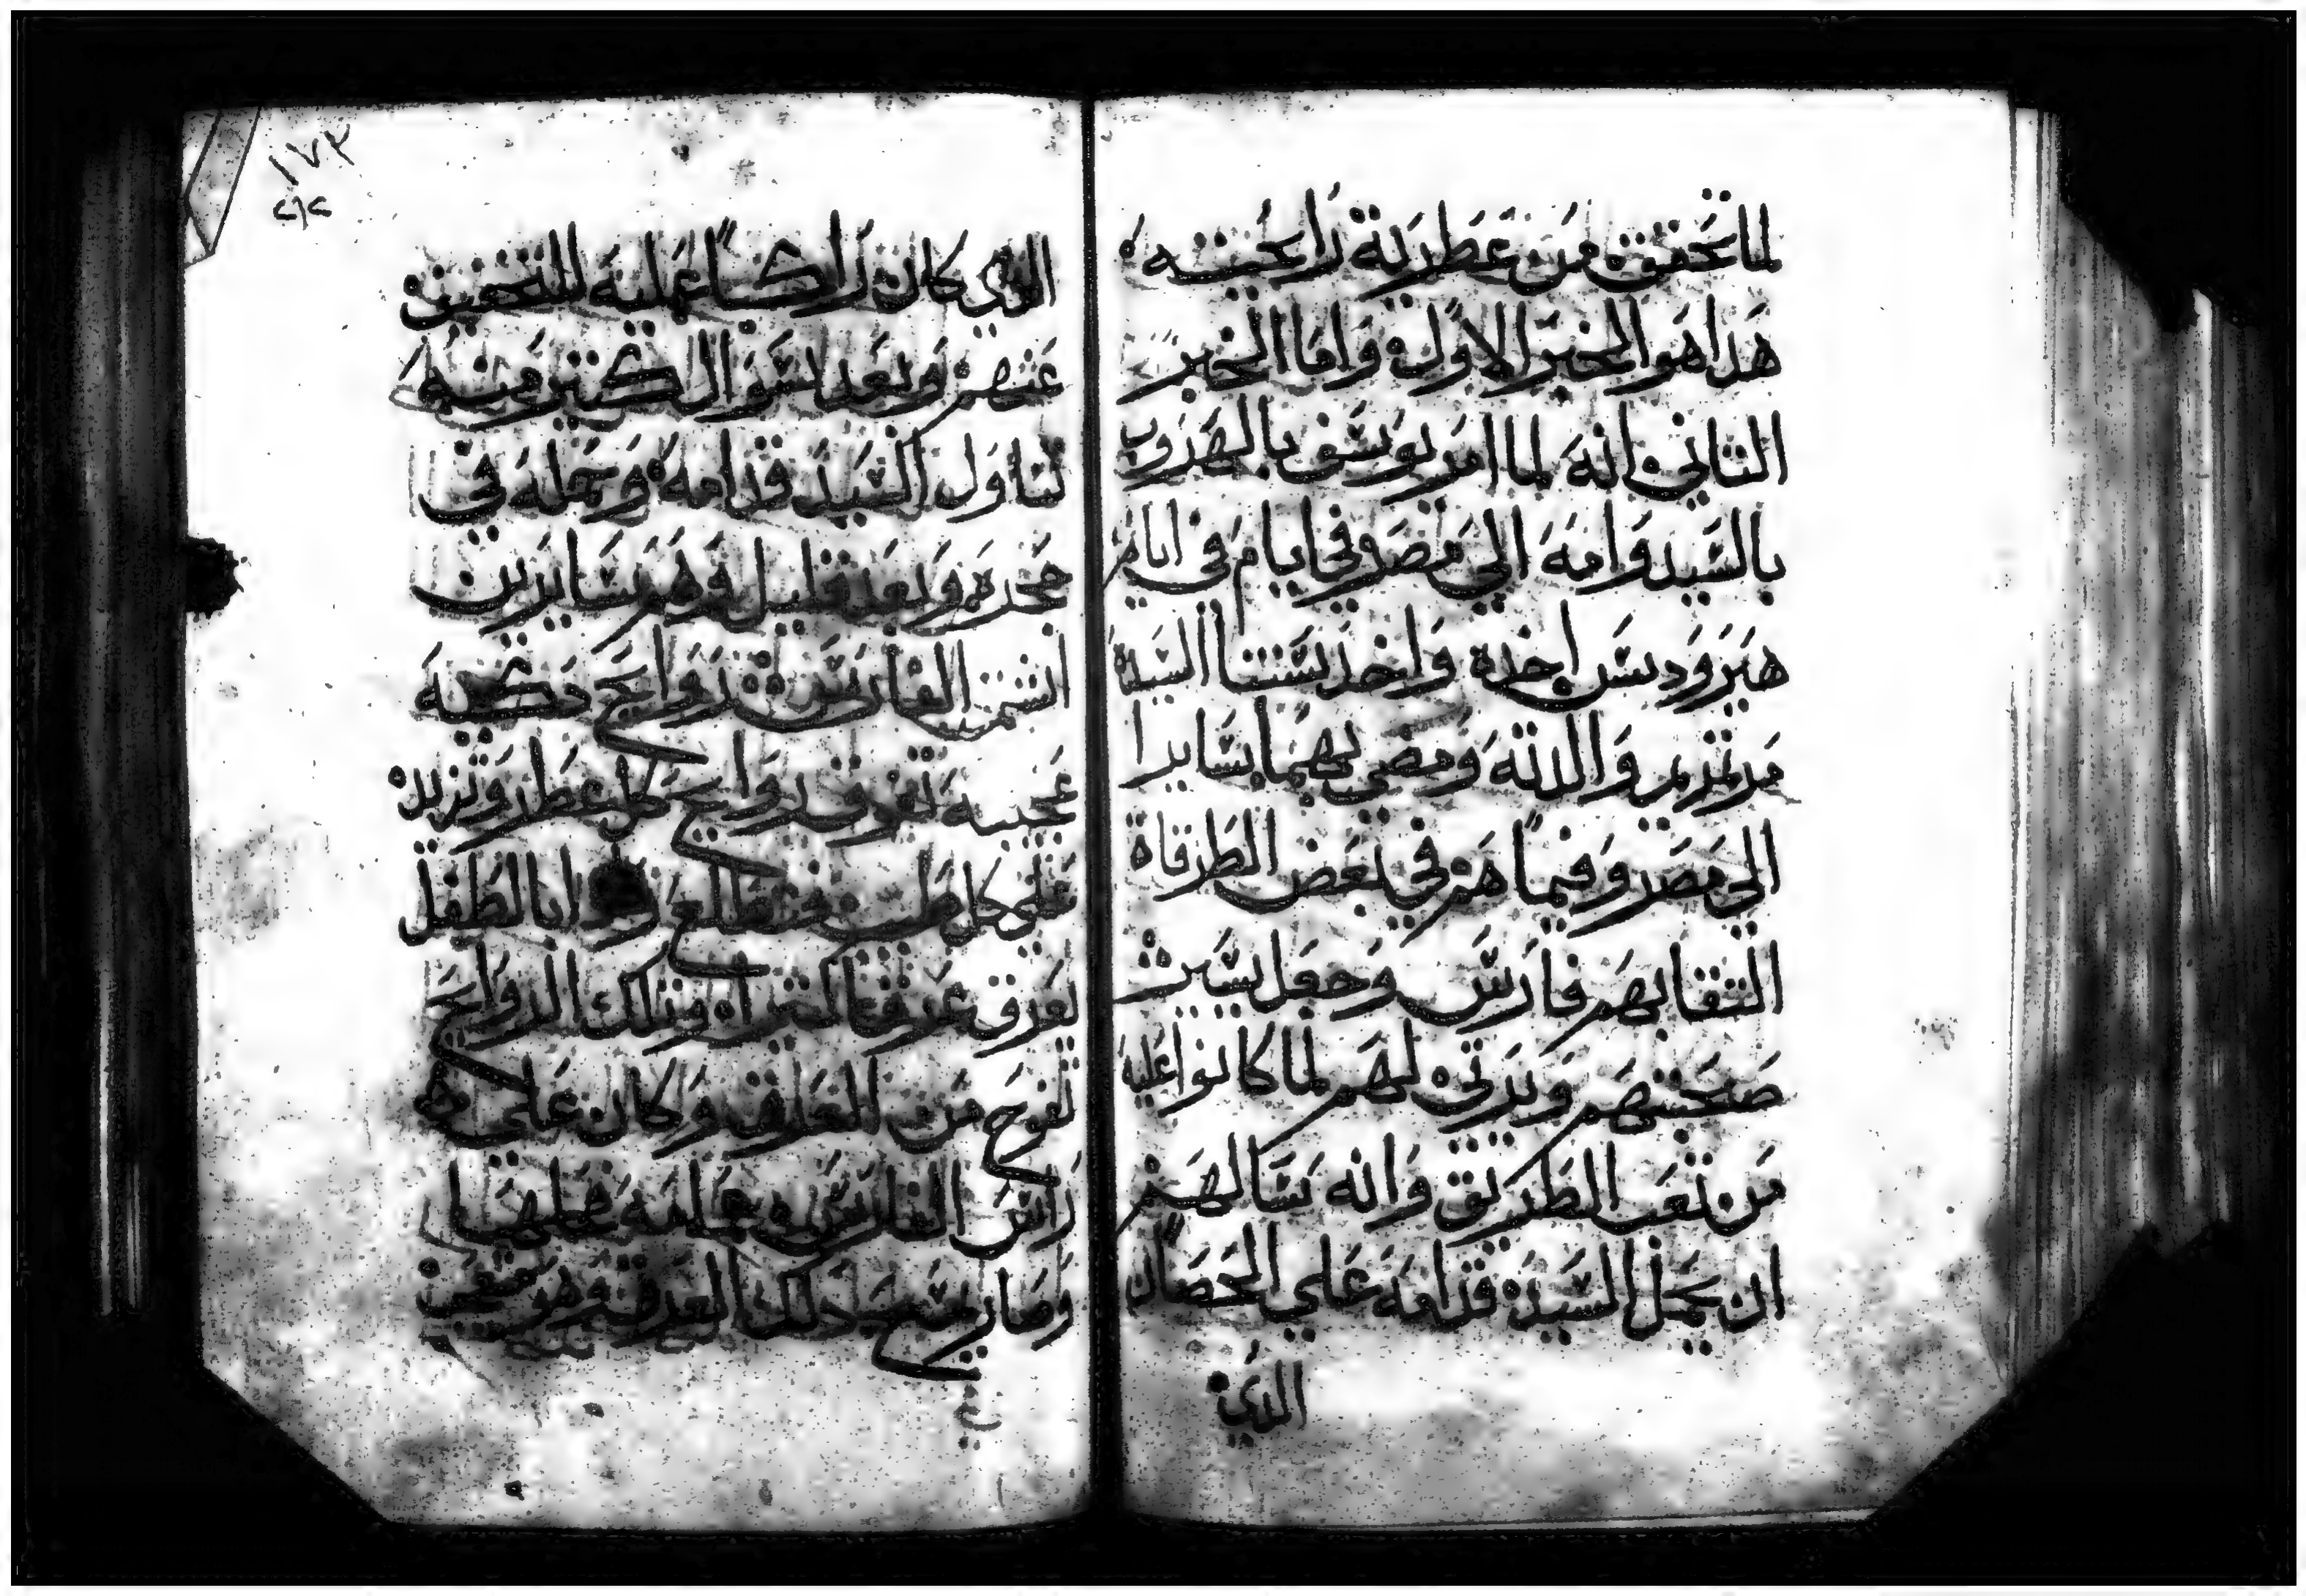 لما تحقق من عطرية رايحيته
هدا هو الخبر الاول واما الخبر
الثاني انه لما امر يوسف بالهروب
بالسيد وامه الي مصر في ايام في ايام
هيرودس اخده واخد ستنا السيدة
مرتمريم والدته ومضي بهما سايرا
الي مصر وفيما هم في بعض الطرقاة
التقا بهم فارس وجعل يسير في
صحبتهم ويرتي لهم لما كانوا عليه
من تعب الطريق وانه سالهم
ان يحمل السيد قدامه علي الحصان
الدي
١٧٣
الدي كان راكبا عليه للتخفيف
عنهم وبعد اسوال كتير منه
تناول السيد قدامه وحمله في
حجره وبعد قليل وهم سايرين
اشتم الفارس روايح دكيه
عجيبه تفوق روايح كل عطر وتزيد
علي كل طيب فتطلع وادا بالطفل
يعرق عرقا كتيرا وتلك الروايح
تفوح من العرق وكان علي
راس الفارس عمامه فحلها
وصار يمسح دلك العرق وهو متعجب